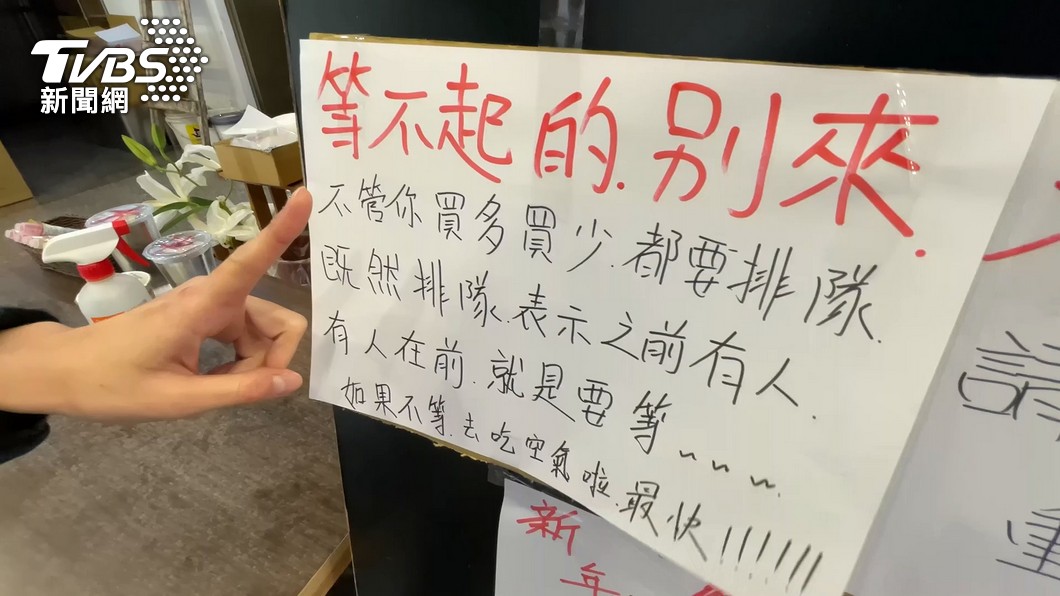 TVBS
新聞網
等不起的.別來.
不管你買多買少.都要排隊.
既然排隊.表示之前有人.
有人在前.就是要等~~~.
如果不等.去吃空氣啦.最快!!!!!!
新年